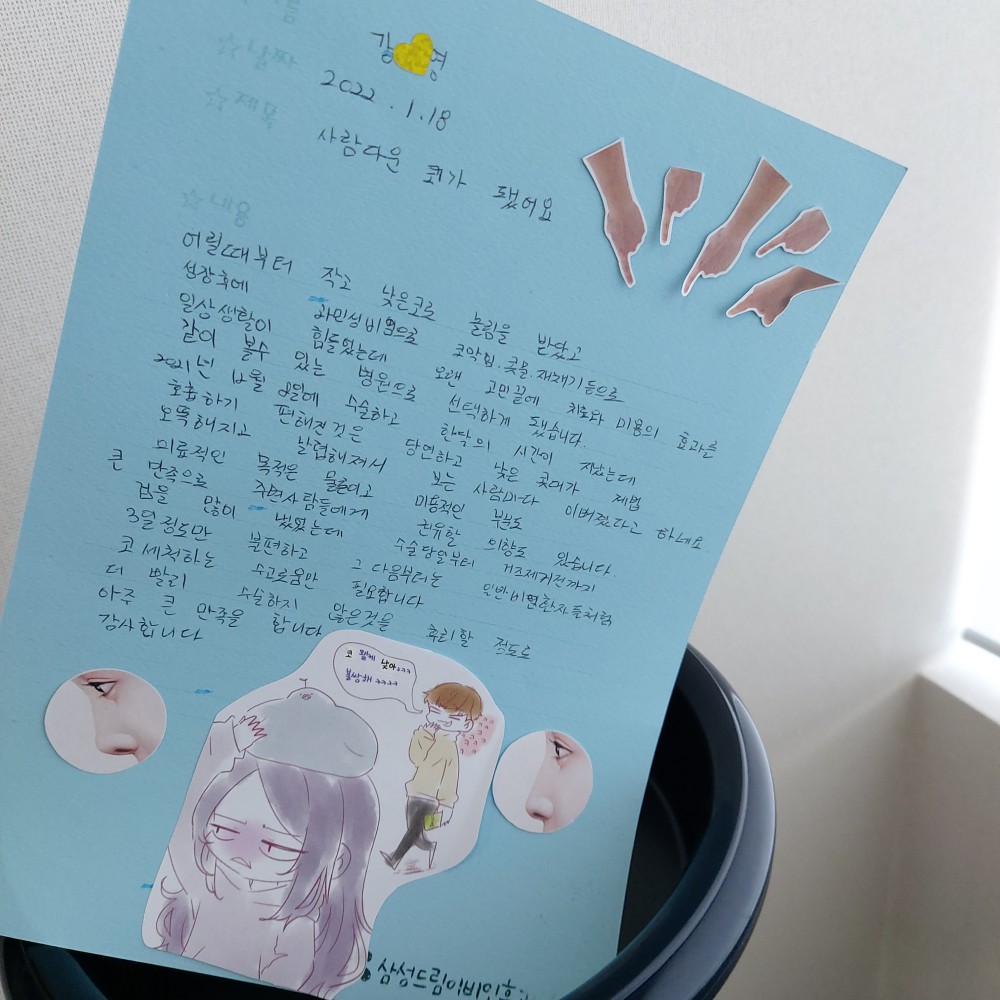 강 영
2022.1.18
사람다운 코가 됐어요
☆날짜
☆제목
☆내용
어릴때부터 작고 낮은코로 놀림을 받았고
성장후에 과민성비염으로 코막힘. 콧물. 재채기등으로
일상생활이 힘들었는데 오랜 고민끝에 치료와 미용의 효과를
같이 볼수 있는 병원으로 선택하게 됐습니다.
2021년 12월 8일에 수술하고 한달의 시간이 지났는데
호흡하기 편해진것은 당연하고 낮은 콧대가 제법
오똑해지고 날렵해져서 보는 사람마다 이뻐졌다고 하네요.
의료적인 목적은 물론이고 미용적인 부분도
큰 만족으로 주변사람들에게 권유할 의향도 있습니다.
겁을 많이 냈었는데 수술당일부터 거즈제거전까지
3일정도만 불편하고 그 다음부터는 일반비염환자들처럼
코세척하는 수고로움만 필요합니다
더 빨리 수술하지 않은것을 후회할 정도로
아주 큰 만족을 합니다
감사합니다
코 왤케 낮아ㅋㅋㅋ
불쌍해ㅋㅋㅋㅋ
삼성드림이비인후